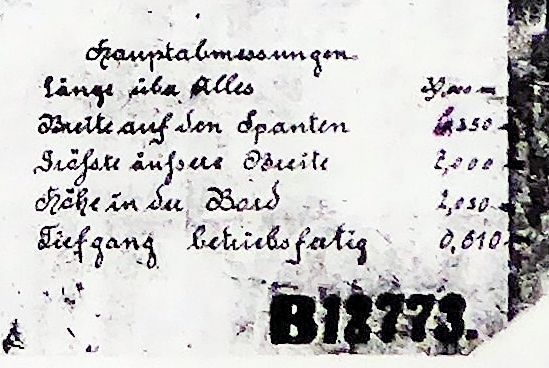 Hauptabmessungen
Länge über Alles
Breite auf den Spanten 6,550
Größte äußere Breite 7,000
Höhe in der Bord 2,050
Tiefgang betriebsfertig 0,610
B18773.